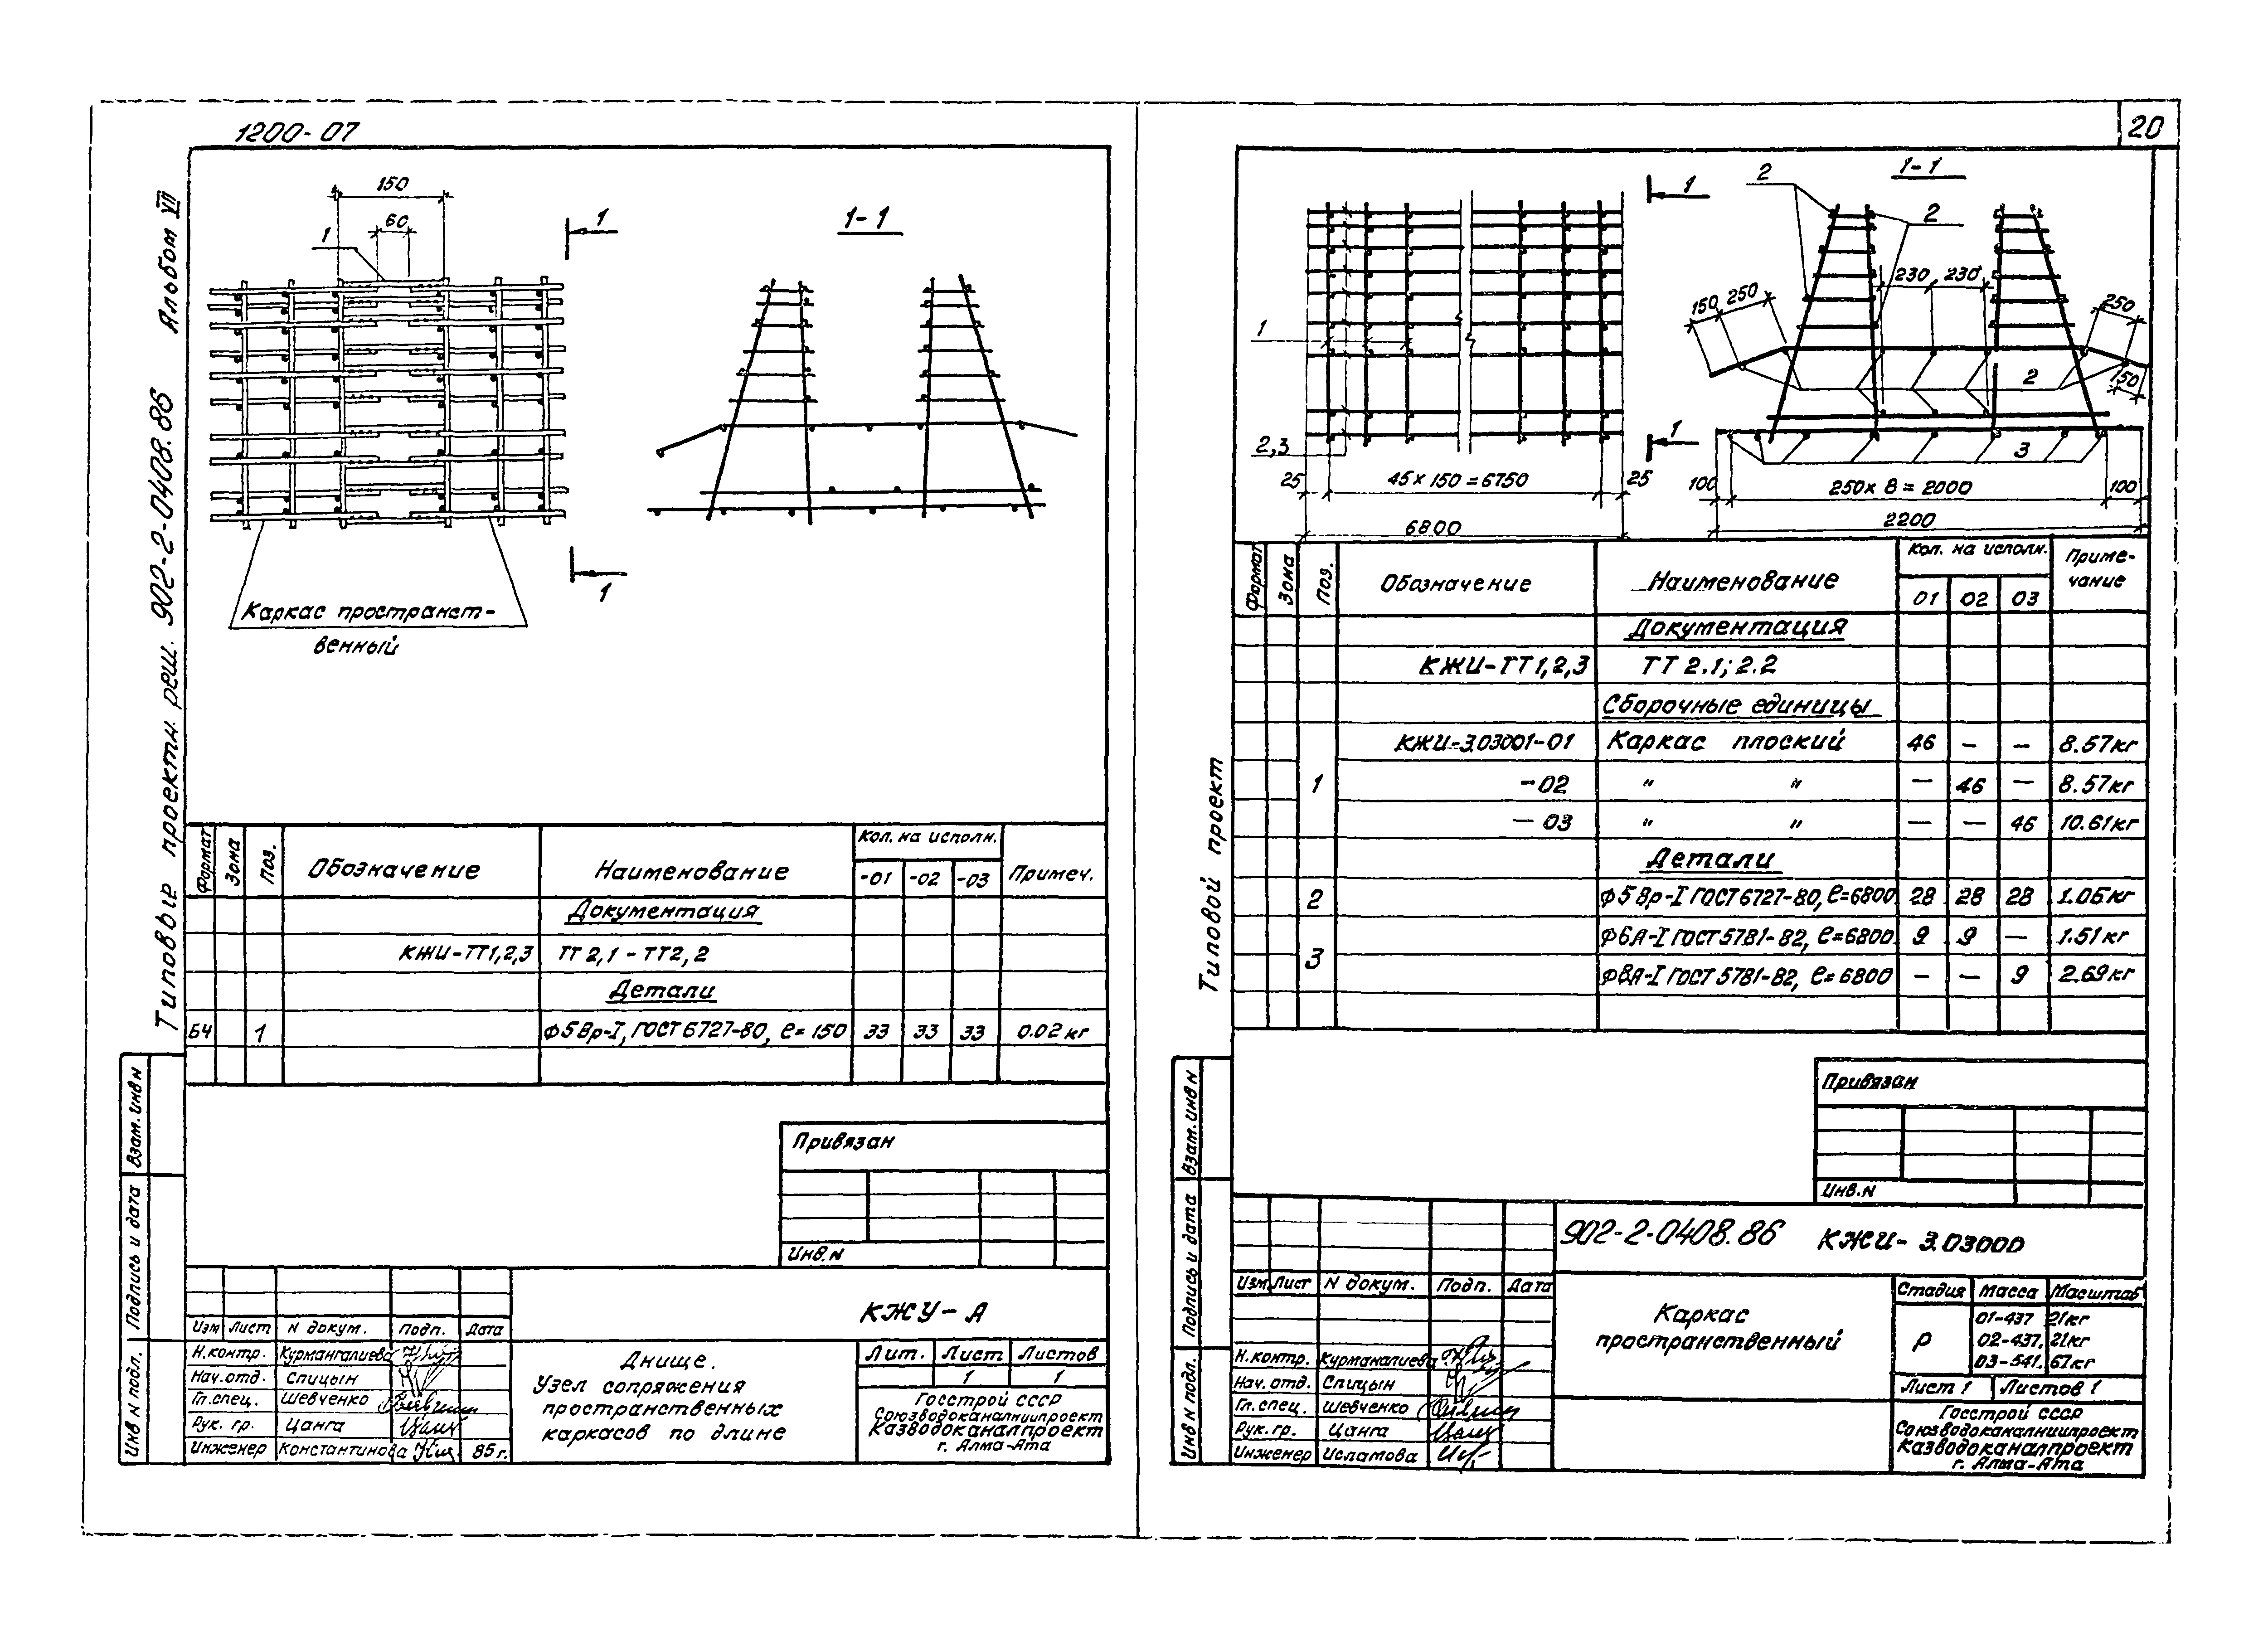 1200-07
Альбом VII
Типовые проектн. реш. 902-2-0408.86
150
60
1
1
1
1-1
Каркас пространст-
венный
Формат Зона Поз. Обозначение Наименование Кол. на исполн. Примеч.
-01 -02 -03
Документация
КЖИ-ТТ1,2,3 ТТ 2,1 - ТТ2, 2
Детали
БЧ 1 Ф5Вр-I, ГОСТ 6727-80, ℓ= 150 33 33 33 0.02 кг
Взам. инв N
Подпись и дата
Инв N подл.
Привязан
Инв. N
КЖУ-А
Изм Лист N докум. Подп. Дата
Н.контр. Курмангалиева
Нач.отд. Спицын
Гл.спец. Шевченко
Рук. гр. Цанга
Инженер Константинова 85 г.
Днище.
Узел сопряжения
пространственных
каркасов по длине
Лит. Лист Листов
1 1
Госстрой СССР
Союзводоканалниипроект
Казводоканалпроект
г. Алма-Ата
20
1
1
1
2,3
25 45 × 150 = 6750 25
6800
1-1
2
2
230 230
150 250
250
150
2
3
100 250 × 8 = 2000 100
2200
Типовой проект
Формат Зона Поз. Обозначение Наименование Кол. на исполн. Приме-
чание
01 02 03
Документация
КЖИ-ТТ1,2,3 ТТ 2.1; 2.2
Сборочные единицы
1 КЖИ-3.03001-01 Каркас плоский 46 — — 8.57кг
-02 " " — 46 — 8.57кг
-03 " " — — 46 10.61кг
Детали
2 Ф5 Вр-I ГОСТ 6727-80, ℓ=6800 28 28 28 1.05 кг
3 Ф6А-I ГОСТ 5781-82, ℓ=6800 9 9 — 1.51 кг
Ф8А-I ГОСТ 5781-82, ℓ=6800 — — 9 2.69 кг
Взам. инв N
Подпись и дата
Инв N подл.
Привязан
Инв. N
902-2-0408.86 КЖИ- 3.03000
Изм Лист N докум. Подп. Дата
Н.контр. Курманалиева
Нач. отд. Спицын
Гл. спец. Шевченко
Рук. гр. Цанга
Инженер Исламова
Каркас
пространственный
Стадия Масса Масштаб
Р
01-437 21кг
02-437, 21кг
03-541, 67кг
Лист 1 Листов 1
Госстрой СССР
Союзводоканалниипроект
Казводоканалпроект
г. Алма-Ата